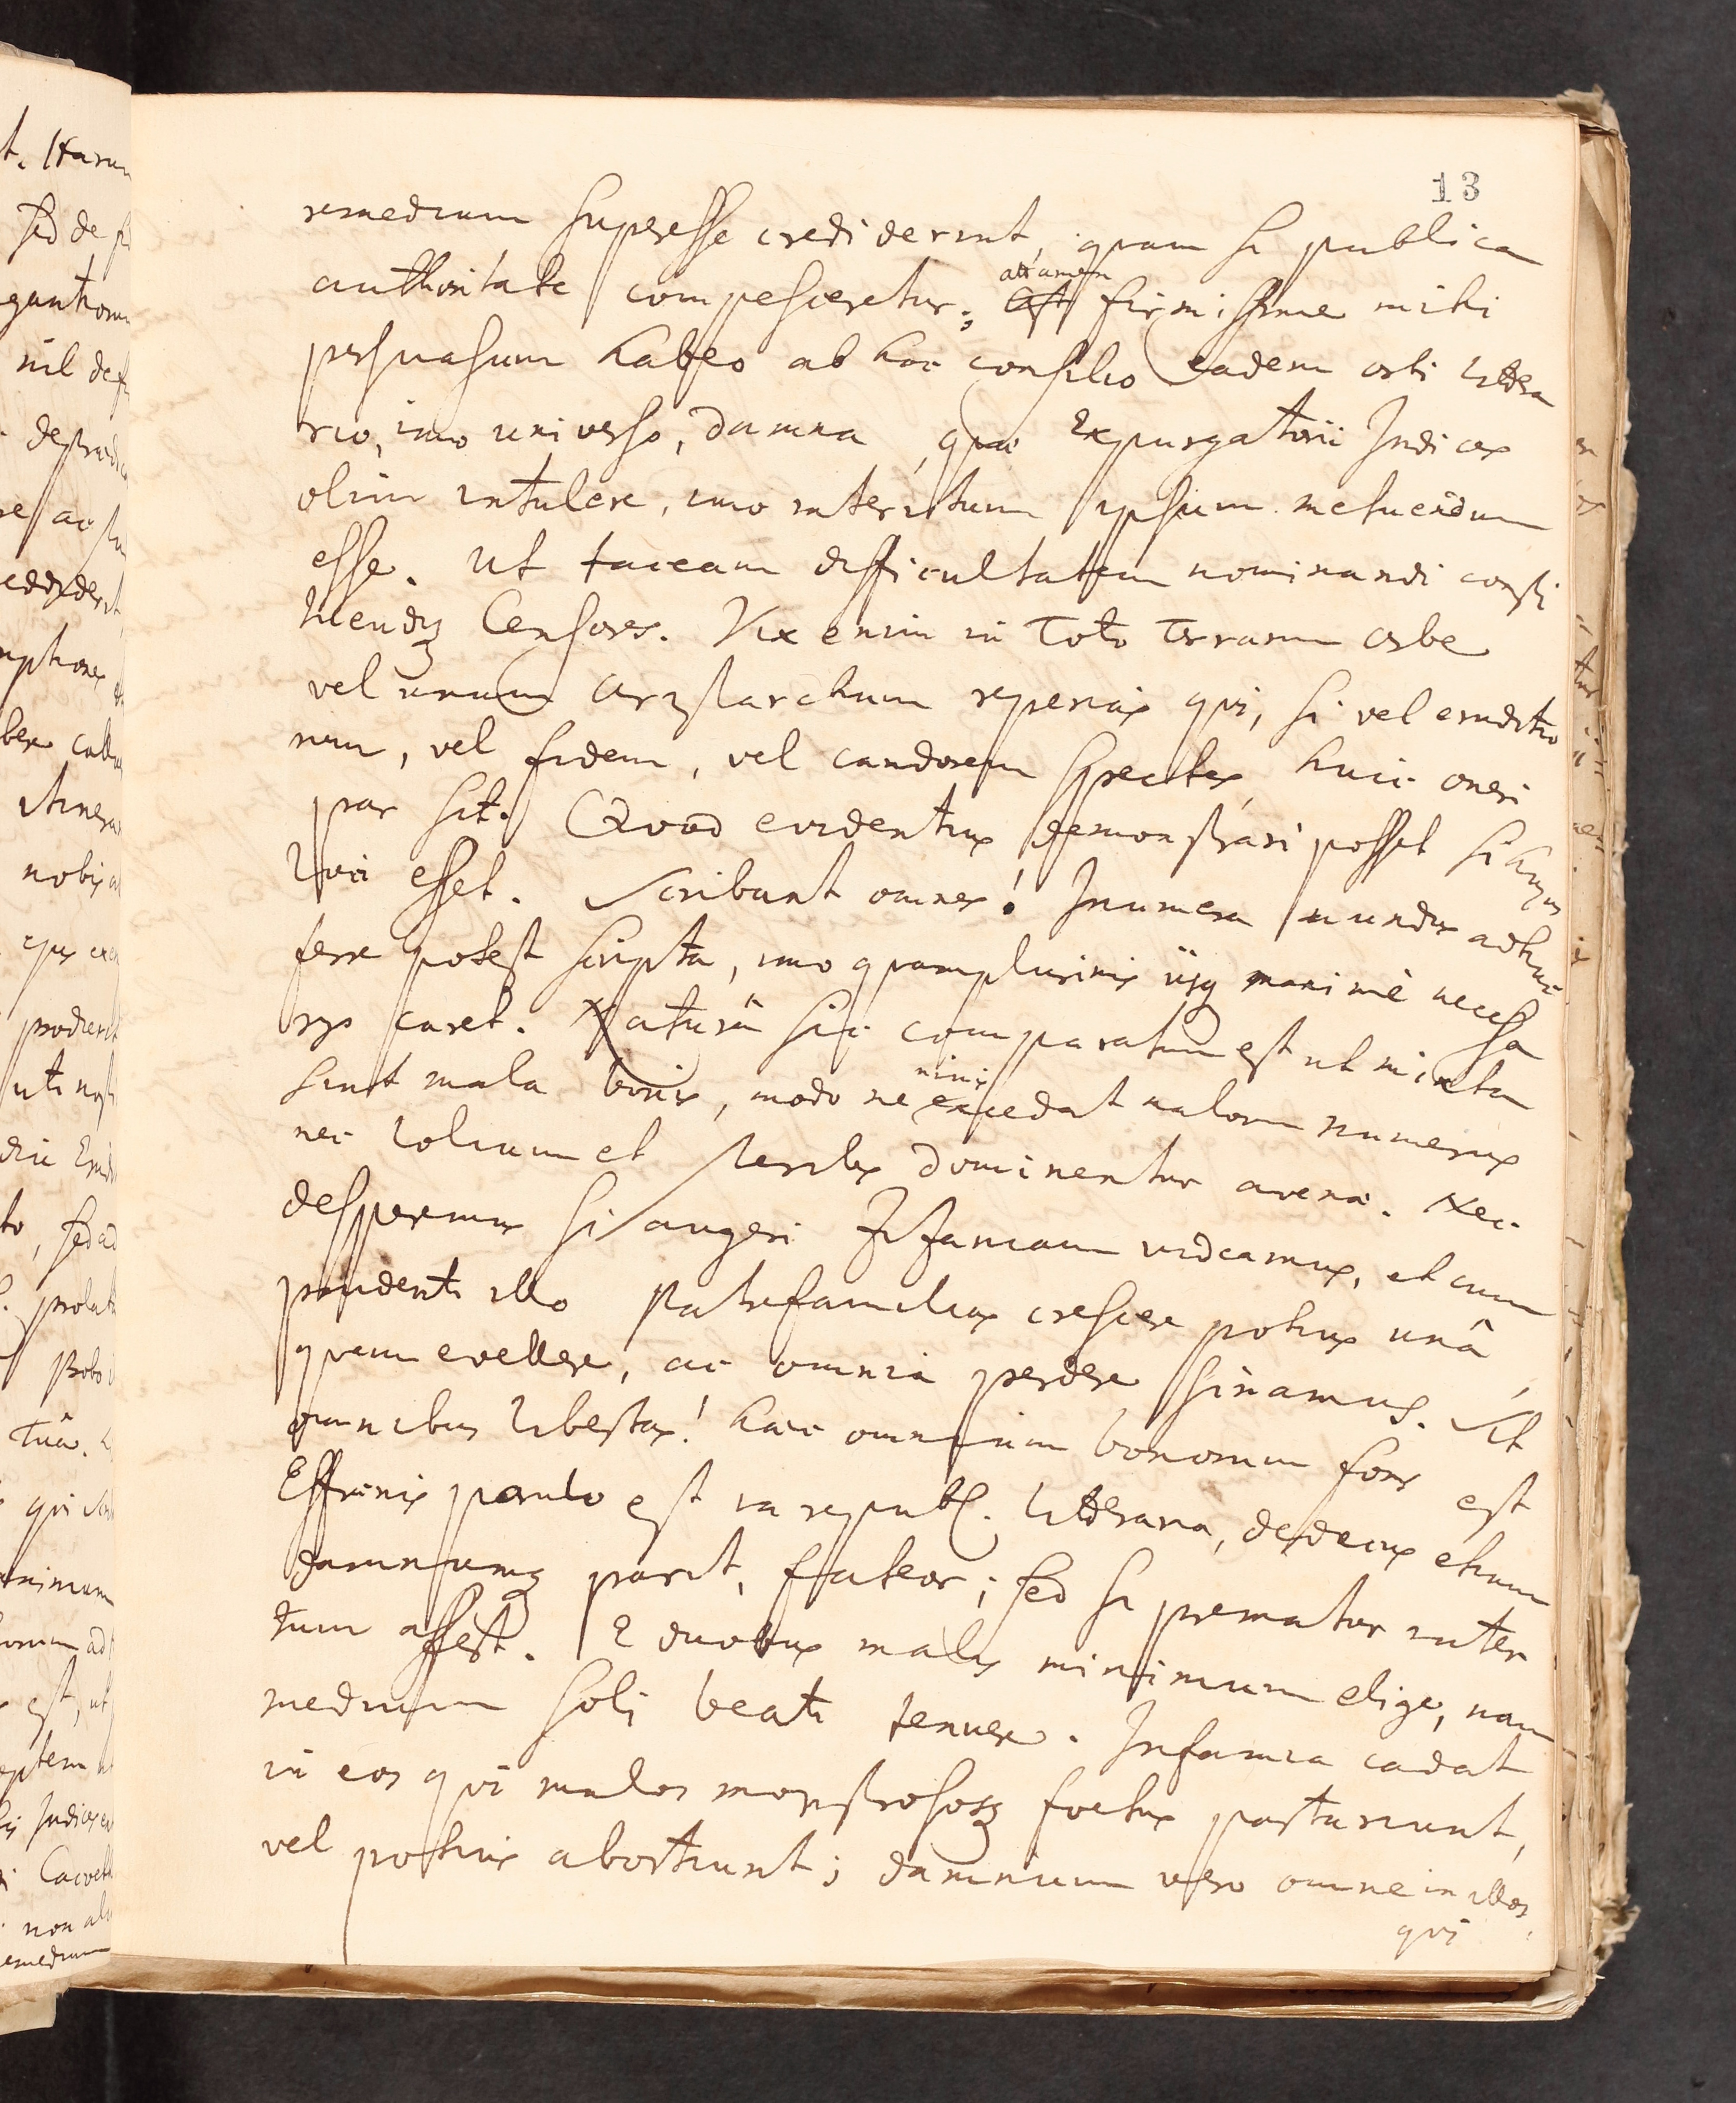 13
remedium superesse crediderint, quam si publica
authoritate compesceretur; attamen firmissime mihi
persuasum habeo ab hoc consilio eadem orbi littera
rio, imo universo, damna, quae Expurgatorii Indices
olim intulere, imo interitum ipsum metuendum
esse. Ut taceam difficultatem nominandi consti
tuendiq Censores. Vix enim in toto terrarum orbe
vel unum Aristarchum reperias qui, si vel eruditio
nem, vel fidem, vel candorem spectes, huic oneri
par sit. Quod evidentius demonstrari posset si hujus
loci esset. Scribant omnes! Inumera mundus adhuc
ferre potest scripta, imo quamplurimis iisq maximè necessa
rys caret. Naturâ sic comparatum est ut mixta
sint mala bonis, modo ne nimis excedat malorum numerus
nec lolium et steriles dominentur avenae. Nec
desperemus si augeri Zizaniam videamus, et cum
prudenti illo Patrefamilias crescere potius unâ
quam evellere, ac omnia perdere sinamus. Sit
omnibus libertas! haec omnium bonorum fons est
Effrenis paulo est in republ. litteraria, dedecus etiam
damnumq parit, fateor; sed si prematur interi
tum affert. E duobus malis minimum elige, nam
medium soli beati tenuere. Infamia cadat
in eos qui malos monstrososq foetus parturiunt,
vel potius abortiunt; damnum vero omne in illos
qui
t. Harum
sed de
nil
nobis
prodierit
Indices
non
remedium